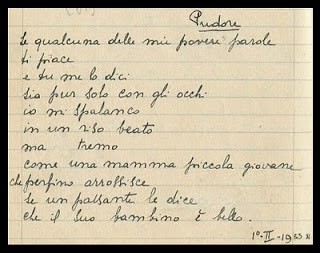 Pudore
Se qualcuna delle mie povere parole
ti piace
e tu me lo dici
sia pur solo con gli occhi
io mi spalanco
in un riso beato
ma tremo
come una mamma piccola giovane
che perfino arrossisce
se un passante le dice
che il suo bambino è bello.
1º-II-1933